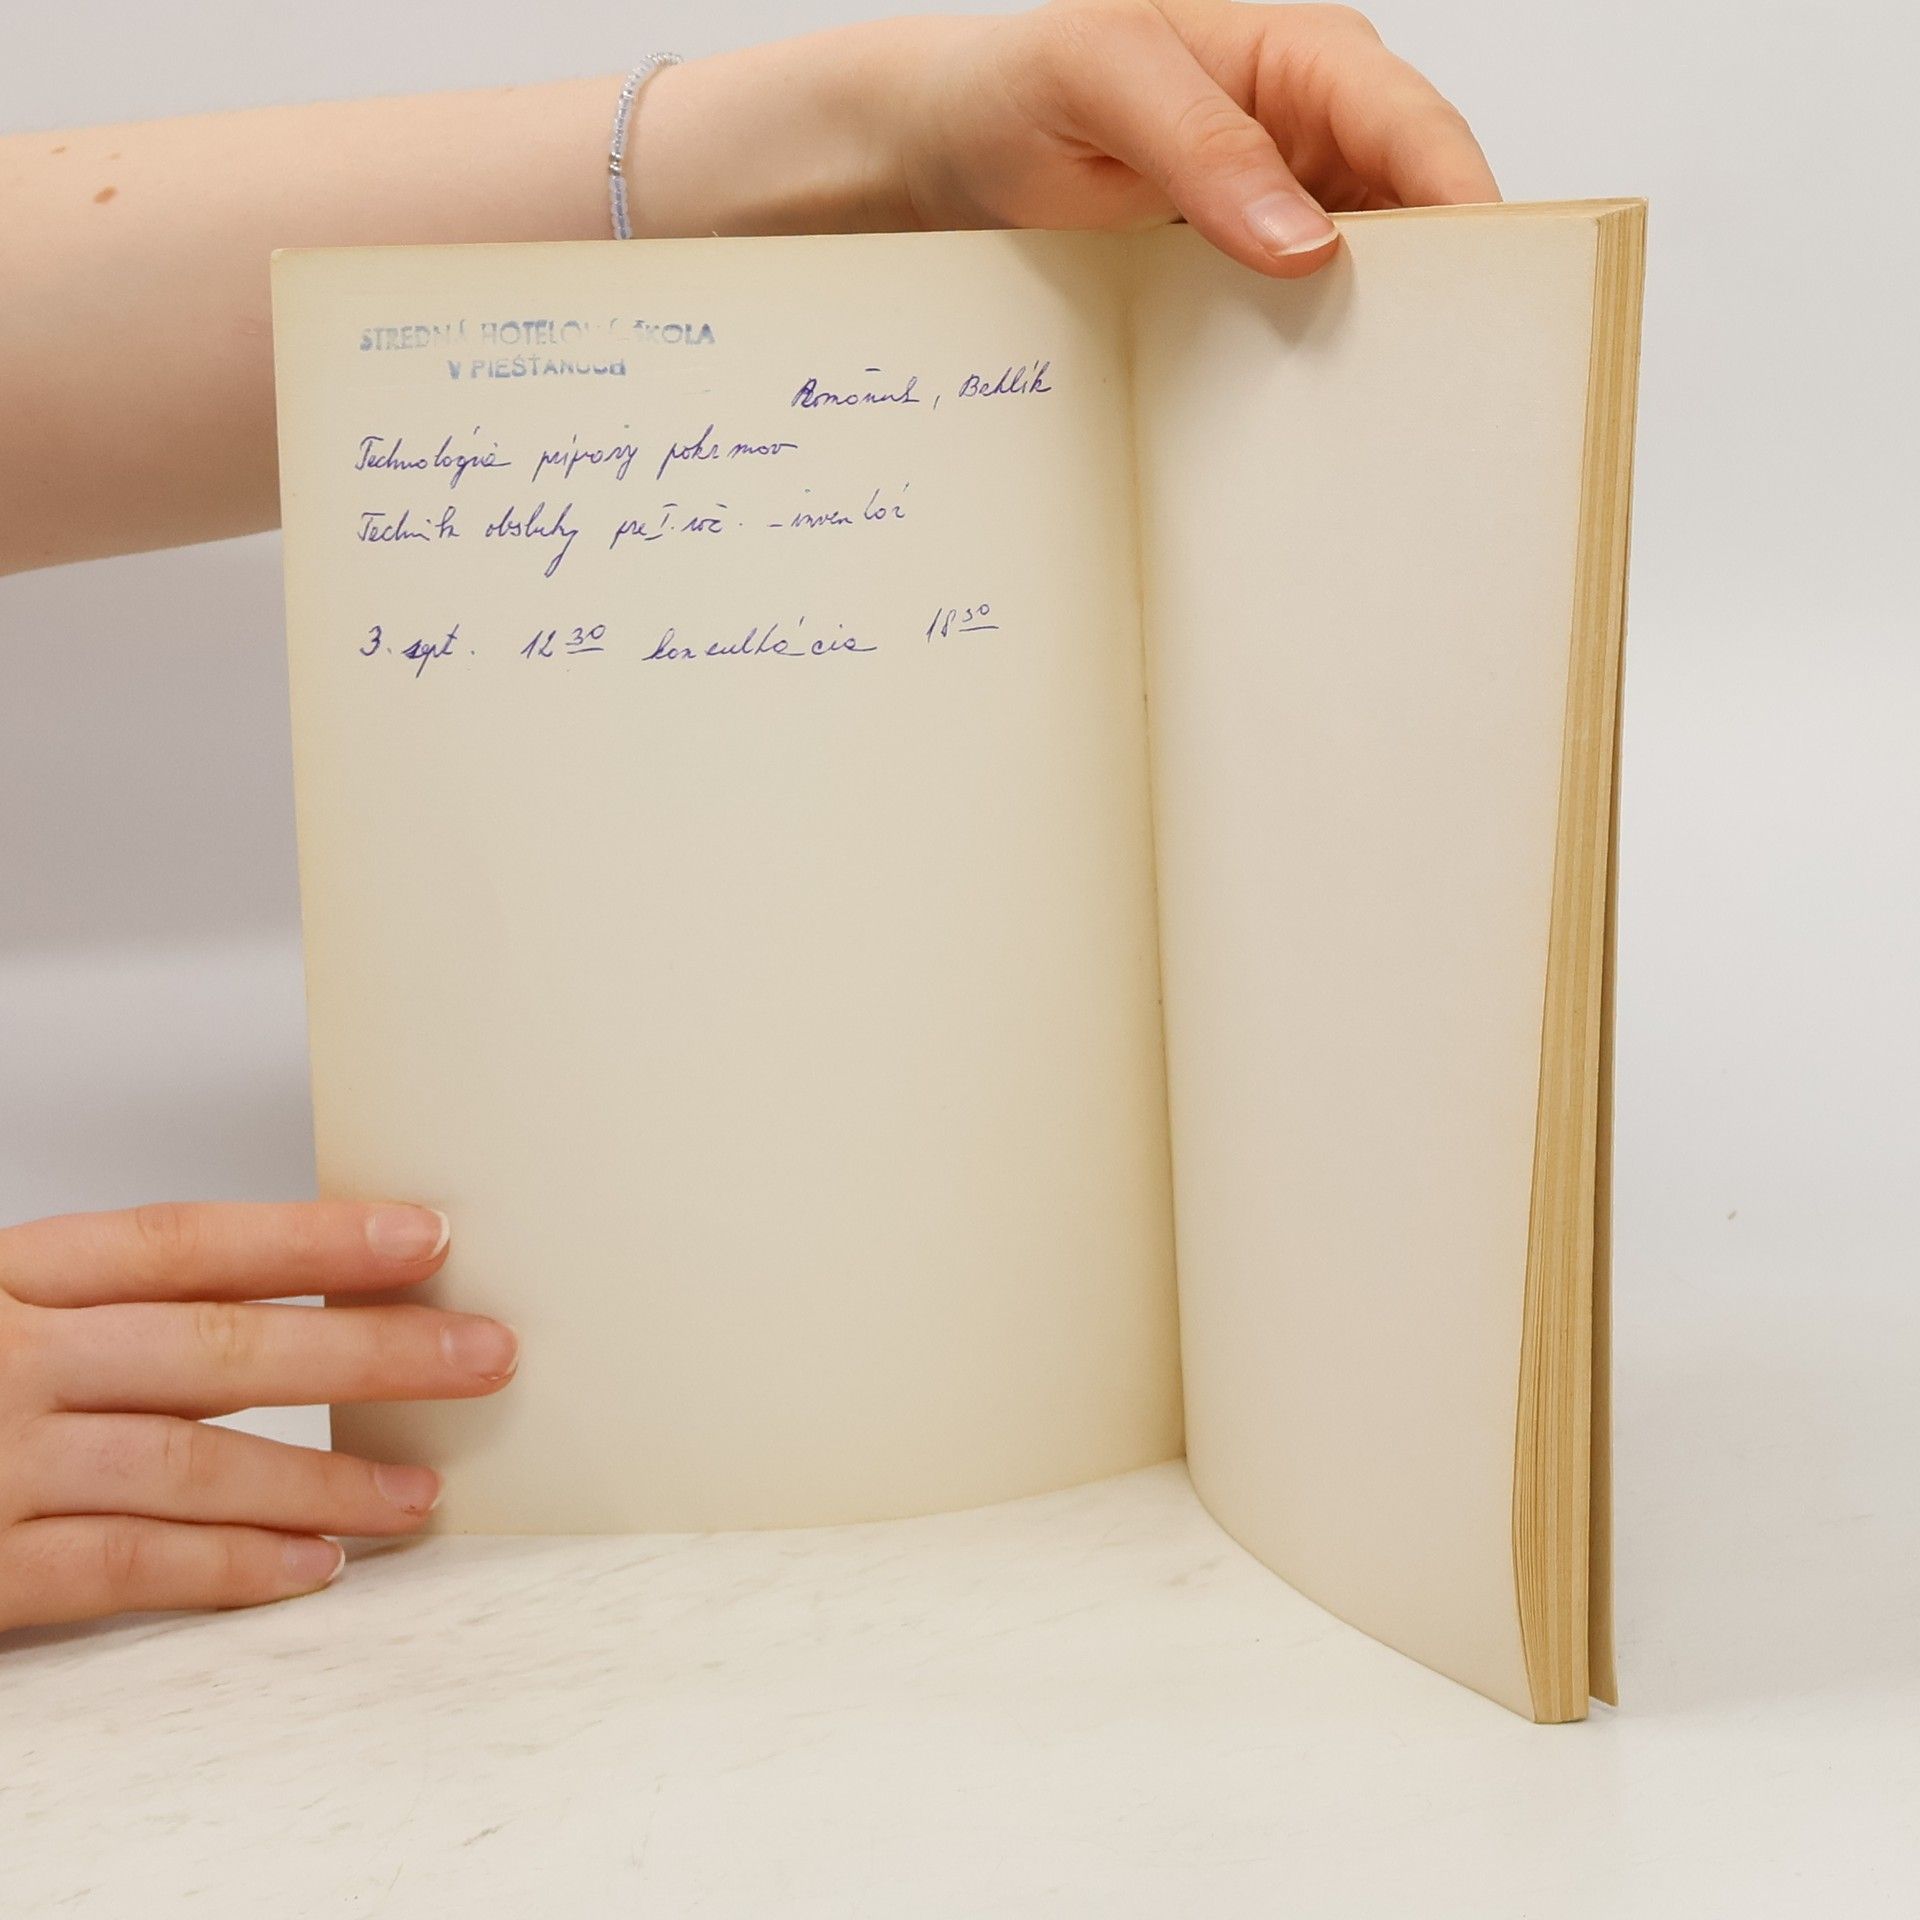 STREDNÁ HOTELOVÁ ŠKOLA
V PIEŠŤANOCH
, Behlík
Technológia prípravy pokrmov
Technik obsluhy pre I. roč. - inventár
3. sept. 12 30 konzultácia 18 30